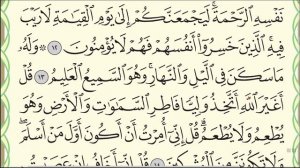 نَفْسِهِ ٱلرَّحْمَةَ لَيَجْمَعَنَّكُمْ إِلَىٰ يَوْمِ ٱلْقِيَـٰمَةِ لَا رَيْبَ
فِيهِ ٱلَّذِينَ خَسِرُوٓا۟ أَنفُسَهُمْ فَهُمْ لَا يُؤْمِنُونَ ١٢ وَلَهُۥ
مَا سَكَنَ فِى ٱلَّيْلِ وَٱلنَّهَارِ وَهُوَ ٱلسَّمِيعُ ٱلْعَلِيمُ ١٣ قُلْ
أَغَيْرَ ٱللَّهِ أَتَّخِذُ وَلِيًّا فَاطِرِ ٱلسَّمَـٰوَٰتِ وَٱلْأَرْضِ وَهُوَ
يُطْعِمُ وَلَا يُطْعَمُ قُلْ إِنِّىٓ أُمِرْتُ أَنْ أَكُونَ أَوَّلَ مَنْ أَسْلَمَ